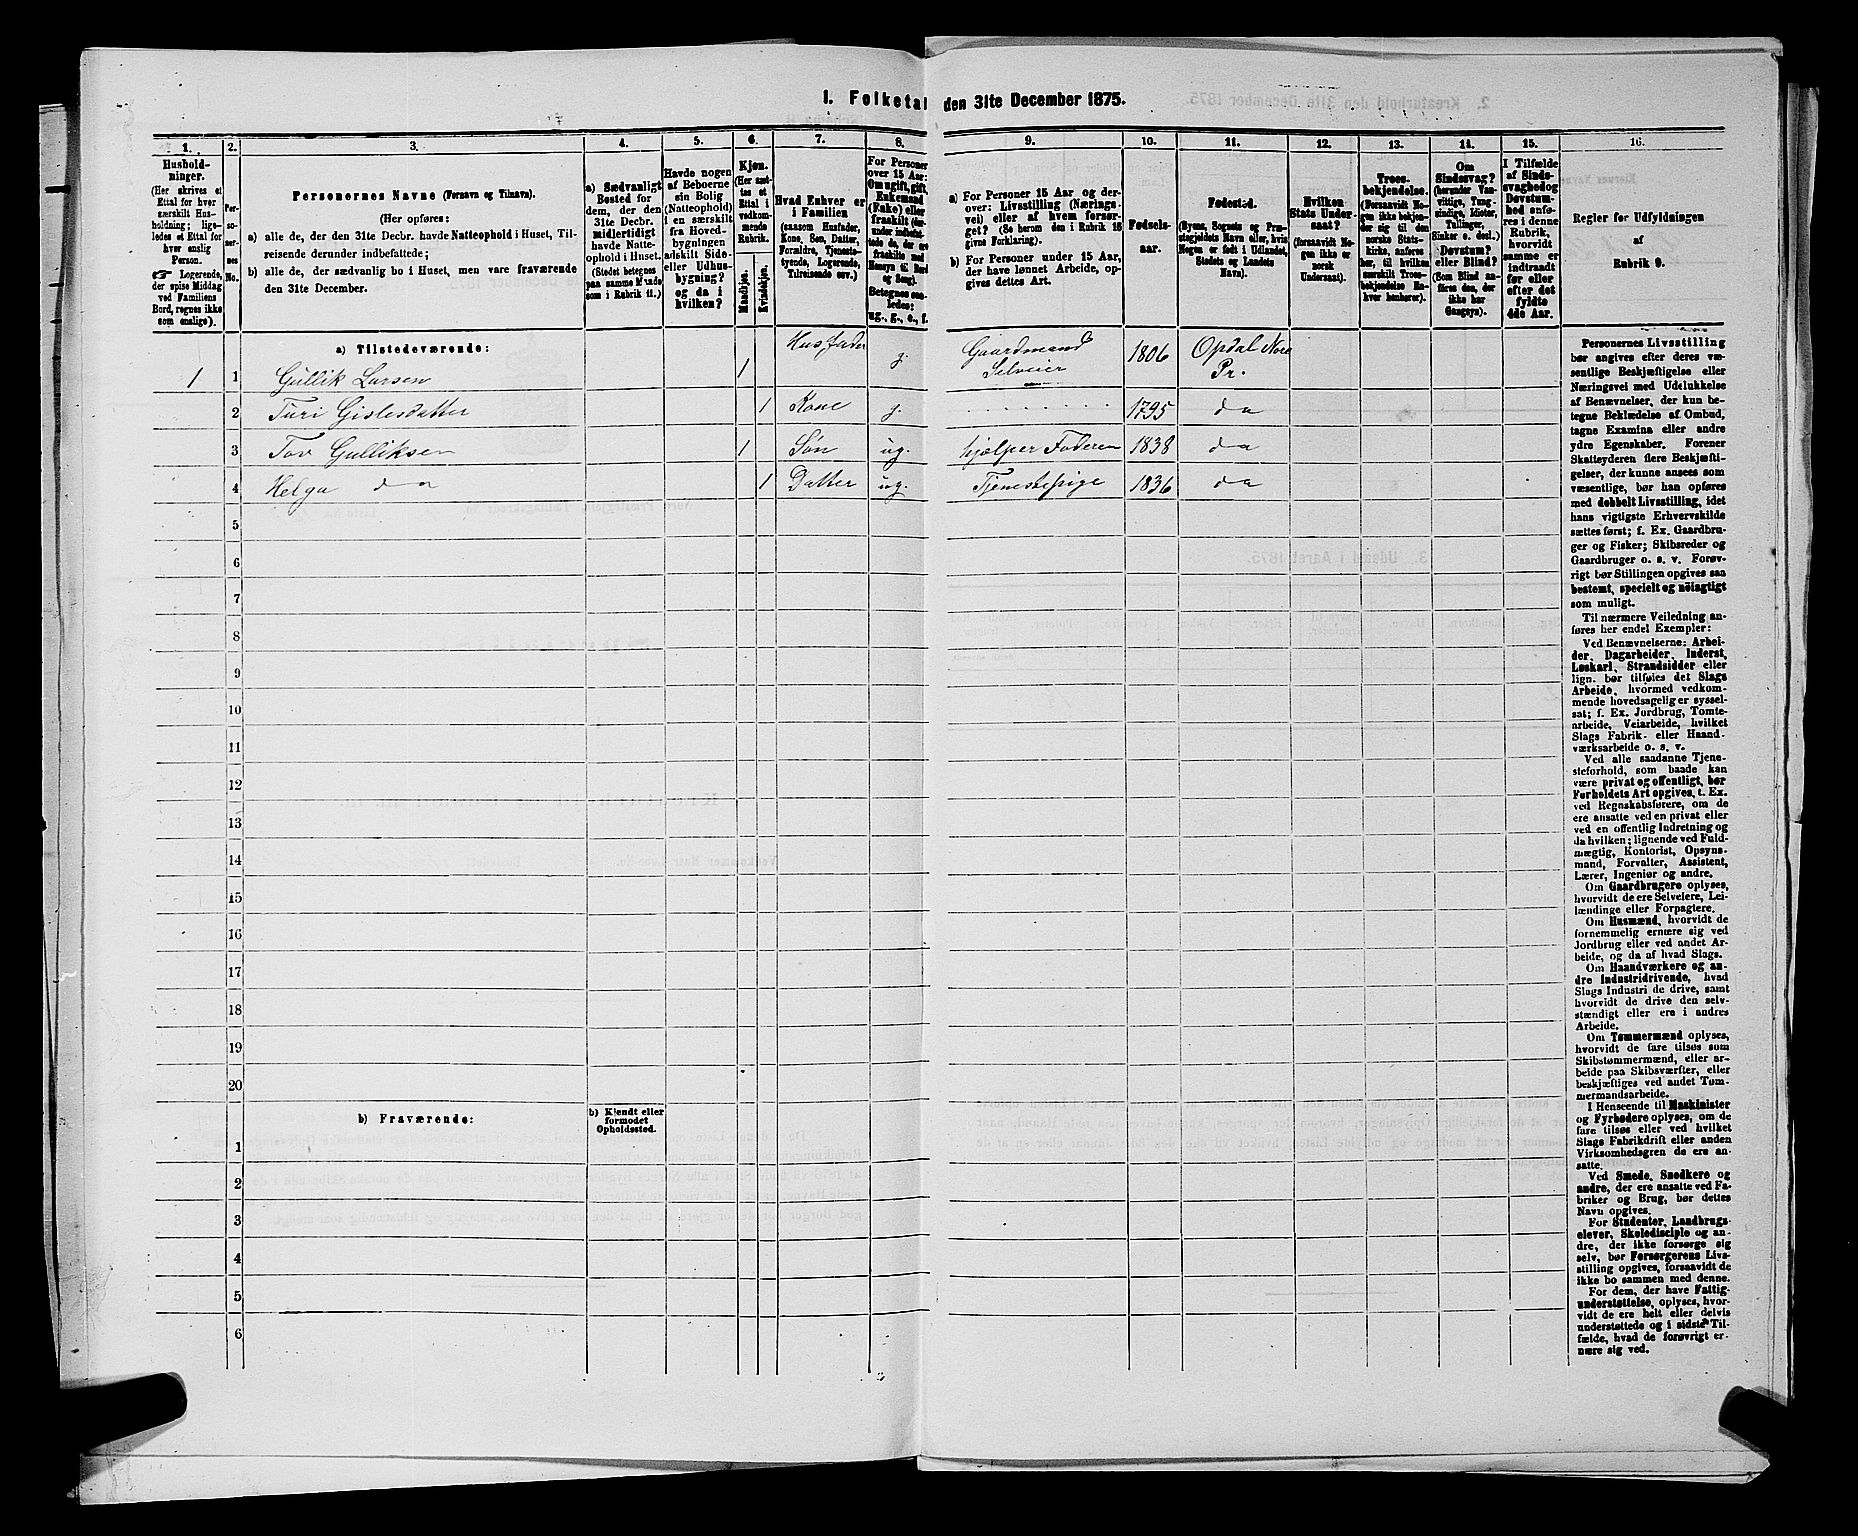 1. Folketal den 31te December 1875.
1. 2. 3. 4. 5. 6. 7. 8. 9. 10. 11. 12. 13. 14. 15. 16.
Hushold-
ninger.
(Her skrives et
Ettal for hver
særskilt Hus-
holdning; lige-
ledes et Ettal for
hver enslig
Person.
☞ Logerende,
der spise Middag
ved Familiens
Bord, regnes ikke
som enslige).
Per-
so-
ner-
nes
No.
Personernes Navne (Fornavn og Tilnavn).
(Her opføres:
a) alle de, der den 31te Decbr. havde Natteophold i Huset, Til-
reisende derunder indbefattede;
b) alle de, der sædvanlig bo i Huset, men vare fraværende
den 31te December.
a) Sædvanligt
Bosted for
dem, der den
31te Decbr.
midlertidigt
havde Natte-
ophold i Huset.
(Stedet betegnes
paa samme Maade
som i Rubrik 11.)
Havde nogen
af Beboerne
sin Bolig
(Natteophold)
i en særskilt
fra Hoved-
bygningen
adskilt Side-
eller Udhus-
bygning?
og da i
hvilken?
Kjøn.
(Her sæt-
tes et
Ettal i
vedkom-
mende
Rubrik.
Mandkjøn.
Kvindekjøn.
Hvad Enhver er
i Familien
(saasom Husfader,
Kone, Søn, Datter,
Forældre, Tjeneste-
tyende, Logerende,
Tilreisende osv.)
For Personer
over 15 Aar:
Om ugift, gift,
Enkemand
(Enke) eller
fraskilt (der-
under indbefat-
tede de, der ere
fraskilte med
Hensyn til Bord
og Seng).
Betegnes saa-
ledes:
ug., g., e., f.
a) For Personer 15 Aar og der-
over: Livsstilling (Nærings-
vei) eller af hvem forsør-
get? (Se herom den i Rubrik 16
givne Forklaring).
b) For Personer under 15 Aar,
der have lønnet Arbeide, op-
gives dettes Art.
Fødsels-
aar.
Fødested.
(Byens, Sognets og Præ-
stegjeldets Navn eller, hvis
Nogen er født i Udlandet,
Stedets og Landets
Navn).
Hvilken
Stats Under-
saat?
(forsaavidt No-
gen ikke er
norsk
Undersaat).
Troes-
bekjendelse.
(Forsaavidt No-
gen ikke bekjen-
der sig til den
norske Stats-
kirke, anføres
her, til hvilken
særskilt Troes-
bekjendelse En-
hver henhører).
Om
Sindssvag?
(herunder Van-
vittige, Tung-
sindige, Idioter,
Tullinger,
Sinker o. desl.)
Døvstum?
eller Blind?
(Som Blind an-
føres den, der
ikke har
Gangsyn).
I Tilfælde
af Sinds-
svaghed og
Døvstum-
hed anfø-
res i denne
Rubrik,
hvorvidt
samme er
indtraadt
før eller
efter det
fyldte
4de Aar.
Regler for Udfyldningen
af
Rubrik 9.
a) Tilstedeværende:
1 1 Gullik Larsen 1 Husfader g. Gaardmand Selveier 1806 Opdal Nore Pr.
2 Turi Gislesdatter 1 Kone g. . . . . . . . . 1795 da
3 Tov Gulliksen 1 Søn ug. hjælper Faderen 1838 da
4 Helga da 1 Datter ug. Tjenestepige 1836 da
5
6
7
8
9
10
11
12
13
14
15
16
17
18
19
20
b) Fraværende:
b) Kjendt eller
formodet
Opholdssted.
1
2
3
4
5
6
Personernes Livsstilling
bør angives efter deres væ-
sentlige Beskjæftigelse eller
Næringsvei med Udelukkelse
af Benævnelser, der kun be-
tegne Beklædelse af Ombud,
tagne Examina eller andre
ydre Egenskaber. Forener
Skatteyderen flere Beskjæfti-
gelser, der kunne ansees som
væsentlige, bør han opføres
med dobbelt Livsstilling, idet
hans vigtigste Erhvervskilde
sættes først; f. Ex. Gaardbru-
ger og Fisker; Skibsreder og
Gaardbruger o. s. v. Forøv-
rigt bør Stillingen opgives saa
bestemt, specielt og nøiagtigt
som muligt.
Til nærmere Veiledning an-
føres her endel Exempler:
Ved Benævnelserne: Arbei-
der, Dagarbeider, Inderst,
Løskarl, Strandsidder eller
lign. bør tilføies det Slags
Arbeide, hvormed vedkom-
mende hovedsagelig er syssel-
sat; f. Ex. Jordbrug, Tomte-
arbeide, Veiarbeide, hvilket
Slags Fabrik- eller Haand-
værksarbeide o. s. v.
Ved alle saadanne Tjene-
steforhold, som baade kan
være privat og offentligt, bør
Forholdets Art opgives, t. Ex.
ved Regnskabsførere, om de
ere ansatte ved en privat eller
ved en offentlig Indretning og
da hvilken; lignende ved Fuld-
mægtig, Kontorist, Opsyns-
mand, Forvalter, Assistent,
Lærer, Ingeniør og andre.
Om Gaardbrugere oplyses,
hvorvidt de ere Selveiere, Lei-
lændinge eller Forpagtere.
Om Husmænd, hvorvidt de
fornemmelig ernære sig ved
Jordbrug eller ved andet Ar-
beide, og da af hvad Slags.
Om Haandværkere og an-
dre Industridrivende, hvad
Slags Industri de drive, samt
hvorvidt de drive den selv-
stændigt eller ere i andres
Arbeide.
Om Tømmermænd oplyses,
hvorvidt de fare tilsøs som
Skibstømmermænd, eller ar-
beide paa Skibsværfter, eller
beskjæftiges ved andet Tøm-
mermandsarbeide.
I Henseende til Maskinister
og Fyrbødere oplyses, om de
fare tilsøs eller ved hvilket
Slags Fabrikdrift eller anden
Virksomhedsgren de ere an-
satte.
Ved Smede, Snedkere og
andre, der ere ansatte ved Fa-
briker og Brug, bør dettes
Navn opgives.
For Studenter, Landbrugs-
elever, Skoledisciple og an-
dre, der ikke forsørge sig
selv, bør Forsørgerens Livs-
stilling opgives, forsaavidt de
ikke bo sammen med denne.
For dem, der have Fattig-
understøttelse, oplyses, hvor-
vidt de ere helt eller delvis
understøttede og i sidste Til-
fælde, hvad de forøvrigt er-
nære sig ved.